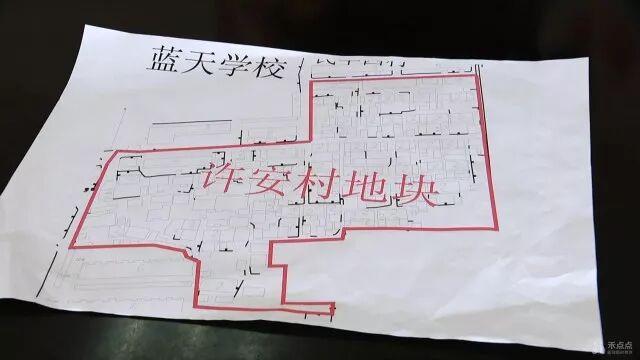 蓝天学校
许安村地块
禾点点